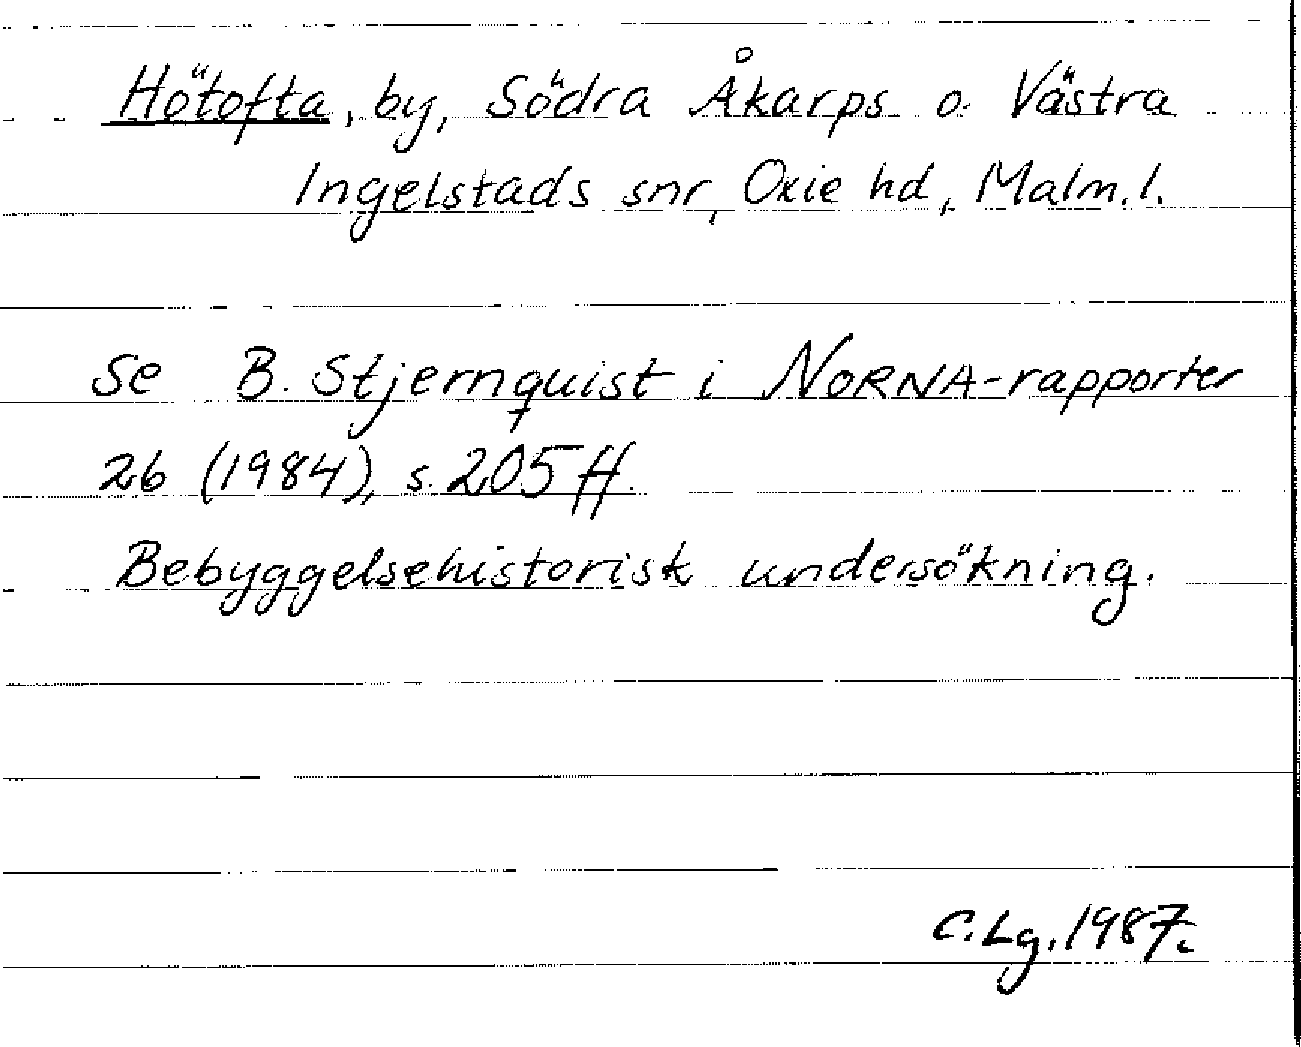 Hötofta, by, Södra Åkarps o. Västra
Ingelstads snr, Oxie hd, Malm. l.
Se B. Stjernquist i NORNA-rapporter
26 (1984), s. 205 ff.
Bebyggelsehistorisk undersökning.
C. Lg. 1987.